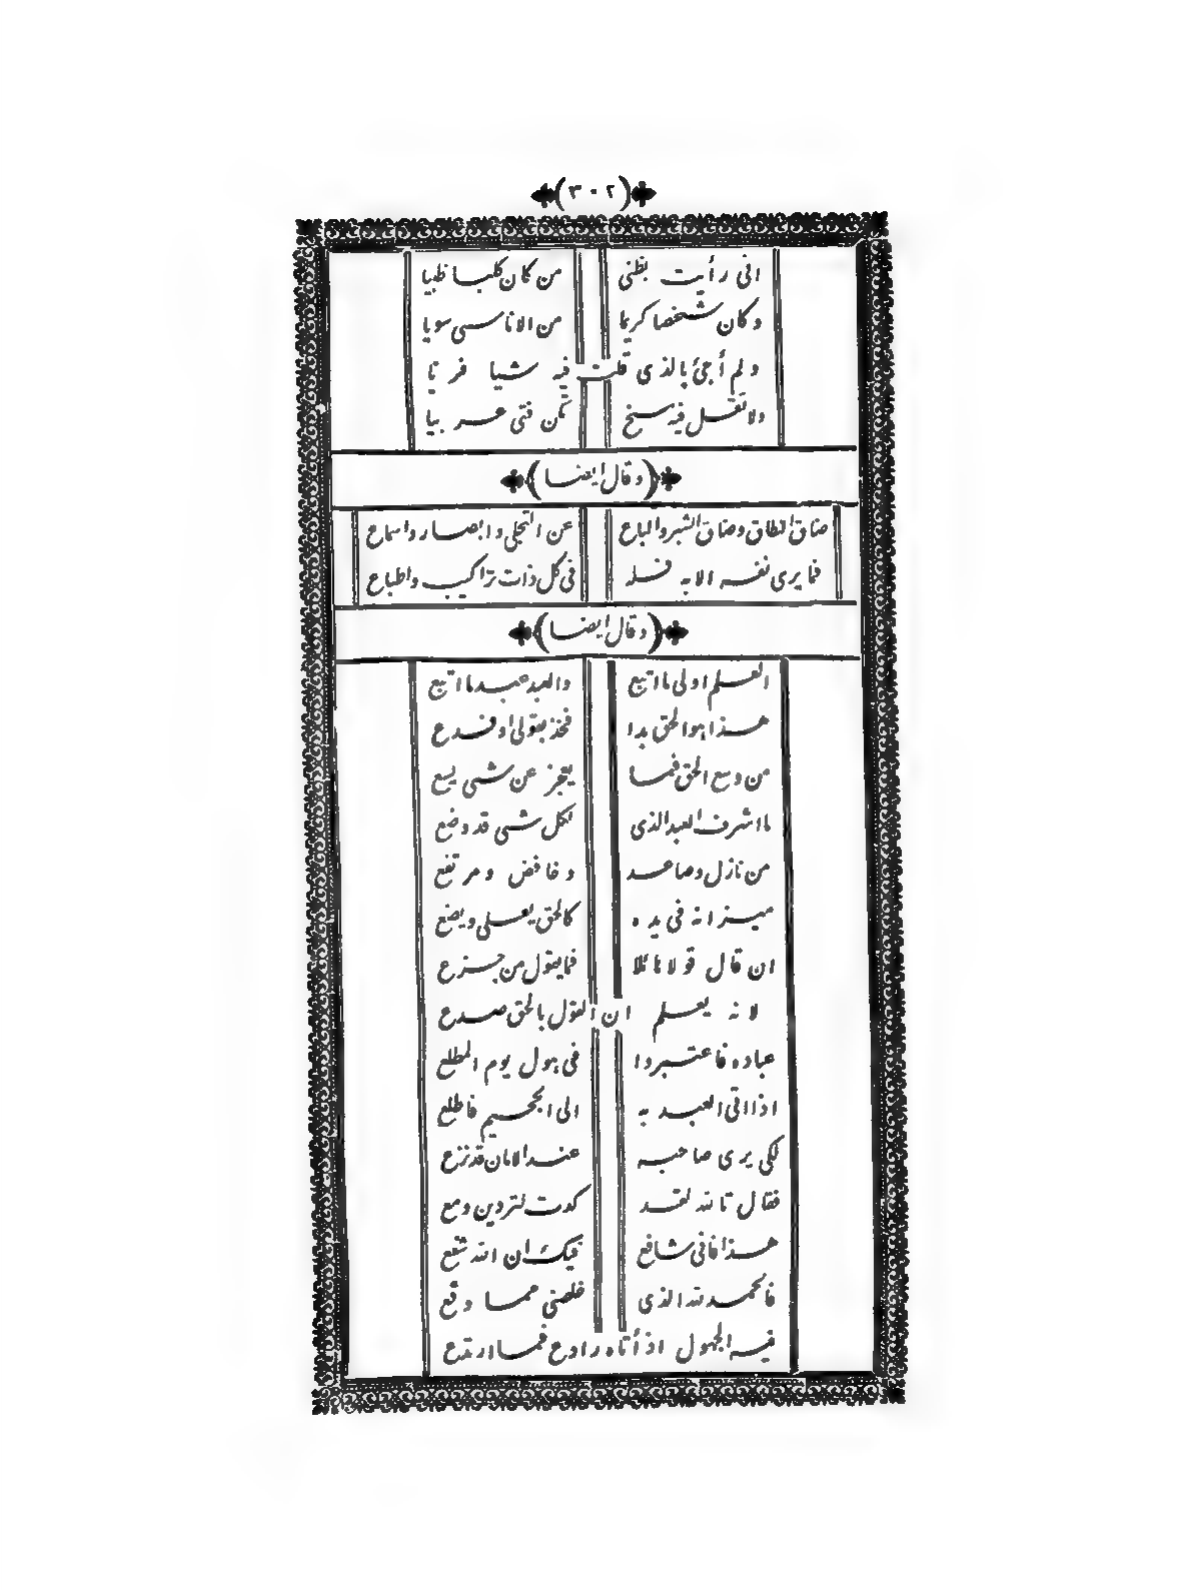 (٣٠٢)
انى رأيت بظنى من كان كلبا ظبيا
وكان شخصا كريما من الاناسى سويا
ولم أجئ بالذى قلت فيه شيا فريا
ولا تقل فيه سخ تكن فتى عربيا
(وقال ايضا)
ضاق النطاق وضاق الشبر والباع عن التجلى وابصار واسماع
فما يرى نفسه الا به فله فى كل ذات تراكيب واطباع
(وقال ايضا)
العلم اولى ما اتبع والعبد عبد ما اتبع
هذا هو الحق بدا فخذ بقولى او فدع
من وسع الحق فما يعجز عن شى يسع
ما اشرف العبد الذى لكل شى قد وضع
من نازل وصاعد وخافض ومرتفع
ميزانه فى يده كالحق يعلى ويضع
ان قال قولا مائلا فما يقول من جزع
لانه يعلم ان القول بالحق صدع
عباده فاعتبروا فى هول يوم المطلع
اذا اتى العبد به الى الجحيم فاطلع
لكى يرى صاحبه عند الامان قد نزع
فقال تالله لقد كدت لتردين ومع
هذا فانى شافع فيك ان الله شفع
فالحمد لله الذى خلصنى مما وقع
فيه الجهول اذ أتاه رادع فما ارتدع